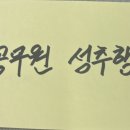 공무원 성추행